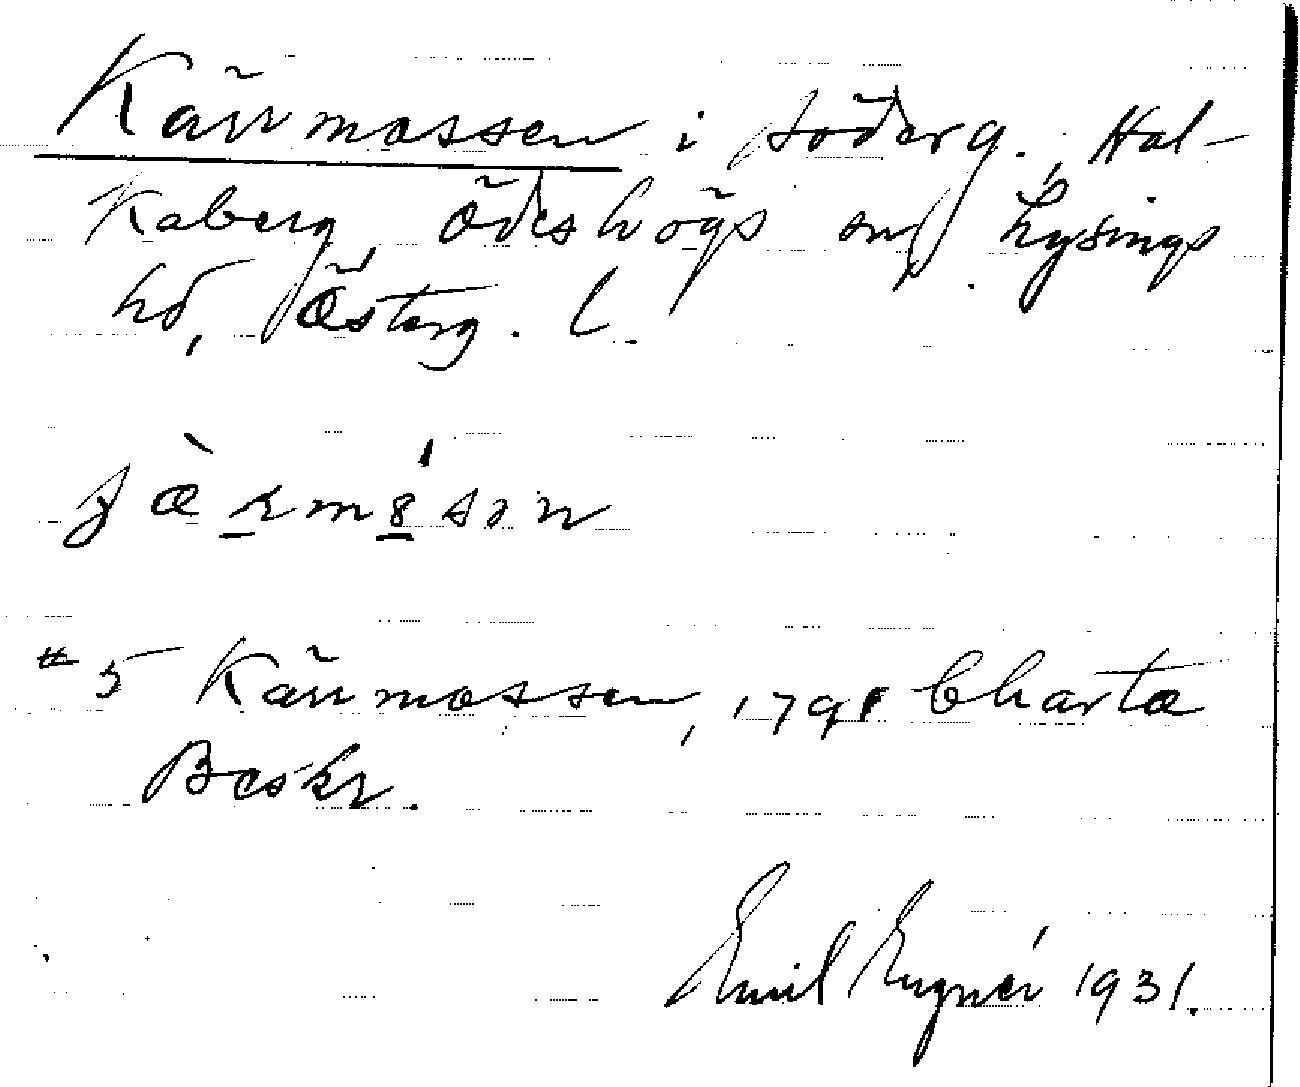 Kärrmossen i Söderg., Hol-
kaberg, Ödeshögs sn, Lysings
hd, Österg. l.
# 5 Kärrmossen, 1791 Charta
Beskr.
Emil Eugnér 1931.